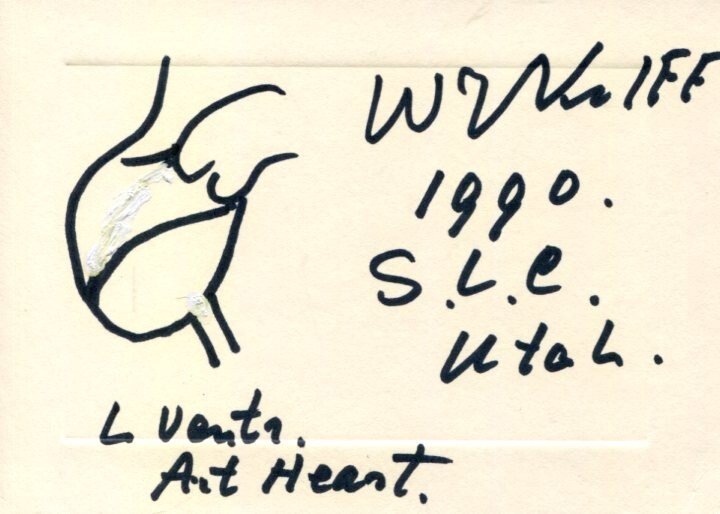 WJ Kolff
1990.
S.L.C.
Utah.
L Ventr.
Art Heart.